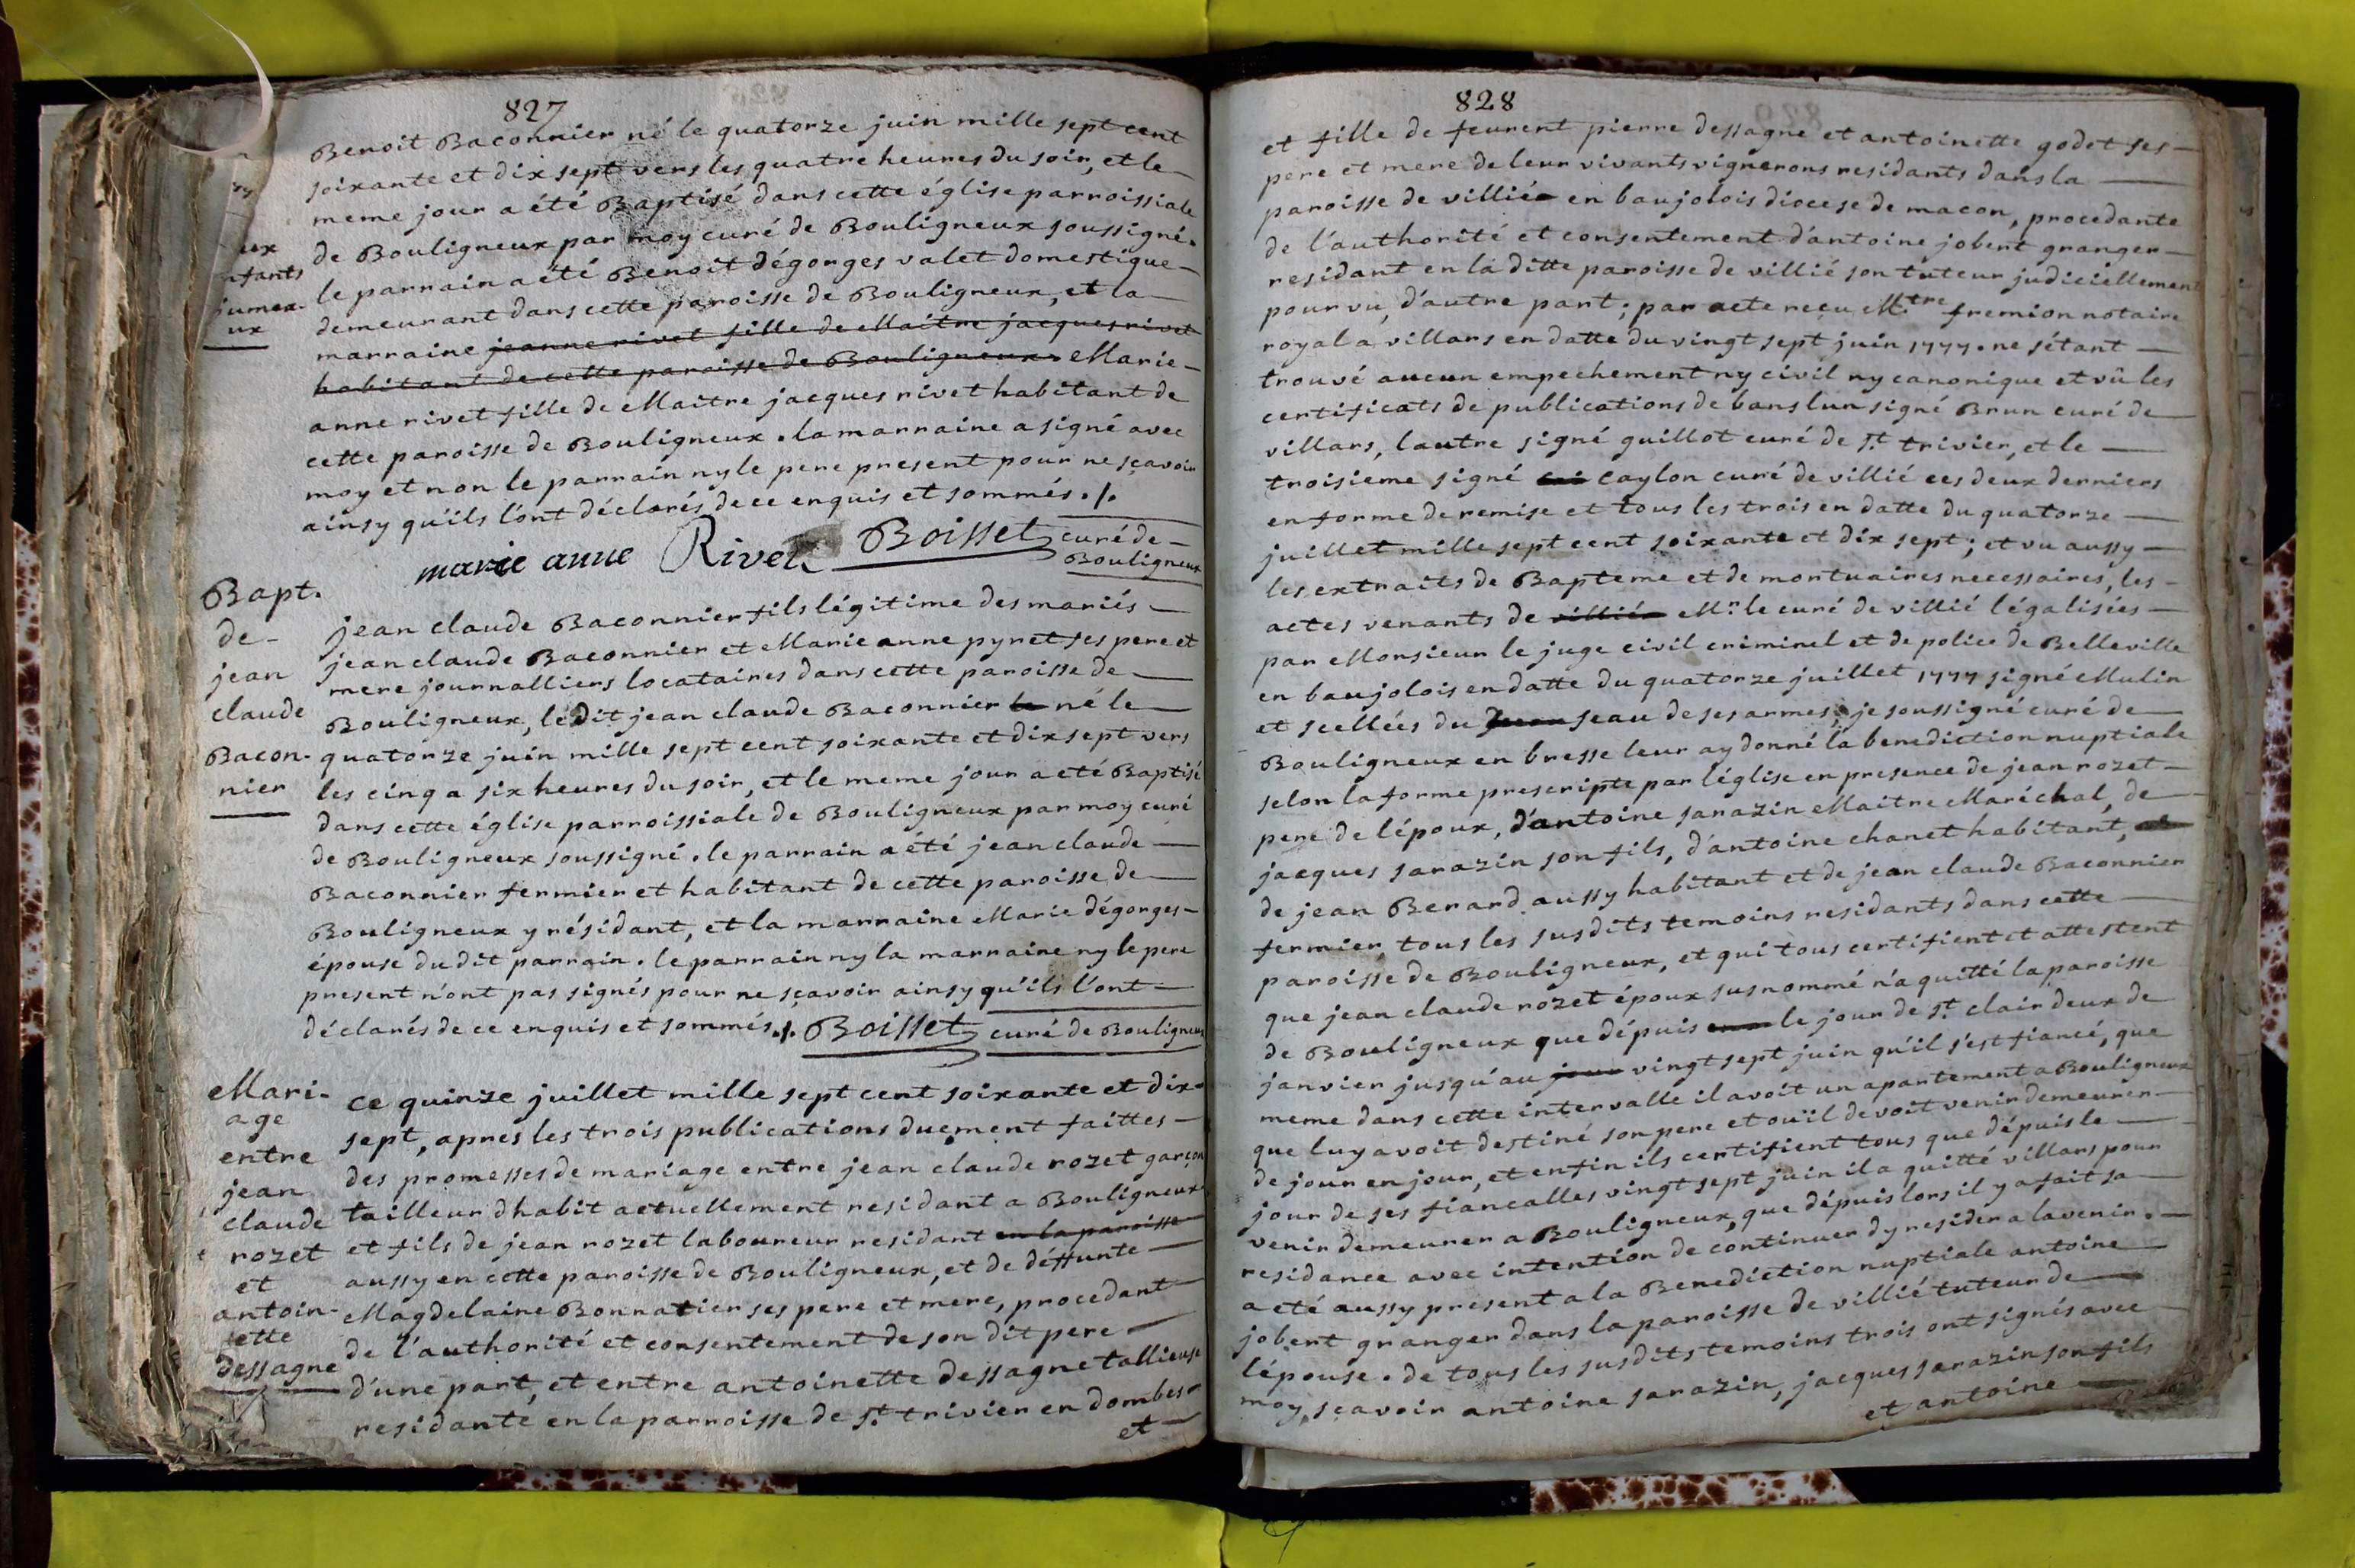 827
Benoit Baconnier né le quatorze juin mille sept cent
soixante et dix sept vers les quatre heures du soir, et le
meme jour a été Baptisé dans cette église parroissiale
de Bouligneux par moy curé de Bouligneux soussigné.
le parrain a été Benoit dégorges valet domestique
demeurant dans cette paroisse de Bouligneux, et la
marraine jeanne rivet fille de Maitre jacques rivet
habitant de cette paroisse de Bouligneux. Marie
anne rivet fille de Maitre jacques rivet habitant de
cette paroisse de Bouligneux. la marraine a signé avec
moy et non le parrain ny le pere present pour ne sçavoir
ainsy qu'ils l'ont déclarés de ce enquis et sommés./.
marie anne Rivet Boisset curé de
Bouligneux
ux
nfants
jumea-
ux
Bapt.
de-
jean
claude
Bacon-
nier
jean claude Baconnier fils légitime des mariés
jean claude Baconnier et Marie anne pyret ses pere et
mere journalliers locataires dans cette paroisse de
Bouligneux, le dit jean claude Baconnier né le
quatorze juin mille sept cent soixante et dix sept vers
les cinq a six heures du soir, et le meme jour a eté Baptisé
dans cette église parroissiale de Bouligneux par moy curé
de Bouligneux soussigné. le parrain a été jean claude
Baconnier fermier et habitant de cette paroisse de
Bouligneux y résidant, et la marraine Marie dégorges
épouse du dit parrain. le parrain ny la marraine ny le pere
present n'ont pas signés pour ne sçavoir ainsy qu'ils l'ont
déclarés de ce enquis et sommés./. Boisset curé de Bouligneux
Mari-
age
entre
jean
claude
rozet
et
antoin-
ette
dessagne
ce quinze juillet mille sept cent soixante et dix
sept, apres les trois publications duement faittes
des promesses de mariage entre jean claude rozet garçon
tailleur dhabit actuellement residant a Bouligneux
et fils de jean rozet laboureur residant en la paroisse
aussy en cette paroisse de Bouligneux, et de déffunte
Magdelaine Bonnatier ses pere et mere, procedant
de l'authorité et consentement de son dit pere
d'une part, et entre antoinette dessagne tallieuse
residante en la parroisse de st. trivier en dombes
et
828
et fille de feurent pierre dessagne et antoinette godet ses
pere et mere de leur vivants vignerons residants dans la
paroisse de villié en baujolois diocese de macon, procedante
de l'authorité et consentement d'antoine jobert granger
residant en la ditte paroisse de villié son tuteur judiciellement
pourvu, d'autre part; par acte reçu M.tre fremion notaire
royal a villars en datte du vingt sept juin 1777. ne s'étant
trouvé aucun empechement ny civil ny canonique et vû les
certificats de publications de bans lun signé Brun curé de
villars, lautre signé guillot curé de st. trivier, et le
troisieme signé caylon curé de villié ces deux derniers
en forme de remise et tous les trois en datte du quatorze
juillet mille sept cent soixante et dix sept; et vu aussy
les extraits de Bapteme et de mortuaires necessaires, les
actes venants de villié Mr. le curé de villié légalisées
par Monsieur le juge civil criminel et de police de Belleville
en baujolois en datte du quatorze juillet 1777 signé Mulin
et scellées du seau de ses armes, je soussigné curé de
Bouligneux en bresse leur ay donné la benediction nuptiale
selon la forme prescripte par léglise en presence de jean rozet
pere de lépoux, d'antoine sarazin Maitre Maréchal, de
jacques sarazin son fils, d'antoine chanet habitant,
de jean Berard aussy habitant et de jean claude Baconnier
fermier, tous les susdits temoins residants dans cette
paroisse de Bouligneux, et qui tous certifient et attestent
que jean claude rozet époux susnommé n'a quitté la paroisse
de Bouligneux que dépuis le jour de st. clair deux de
janvier jusqu'au jour vingt sept juin qu'il s'est fiancé, que
meme dans cette intervalle il avoit un apartement a Bouligneux
que luy avoit destiné son pere et ou il devoit venir demeurer
de jour en jour, et enfin ils certifient tous que dépuis le
jour de ses fiancalles vingt sept juin il a quitté villars pour
venir demeurer a Bouligneux, que dépuis lors il y a fait sa
residance avec intention de continuer dy resider a lavenir.
a eté aussy present a la Benediction nuptiale antoine
jobert granger dans la paroisse de villié tuteur de
lépouse. de tous les susdits temoins trois ont signés avec
moy, sçavoir antoine sarazin, jacques sarazin son fils
et antoine